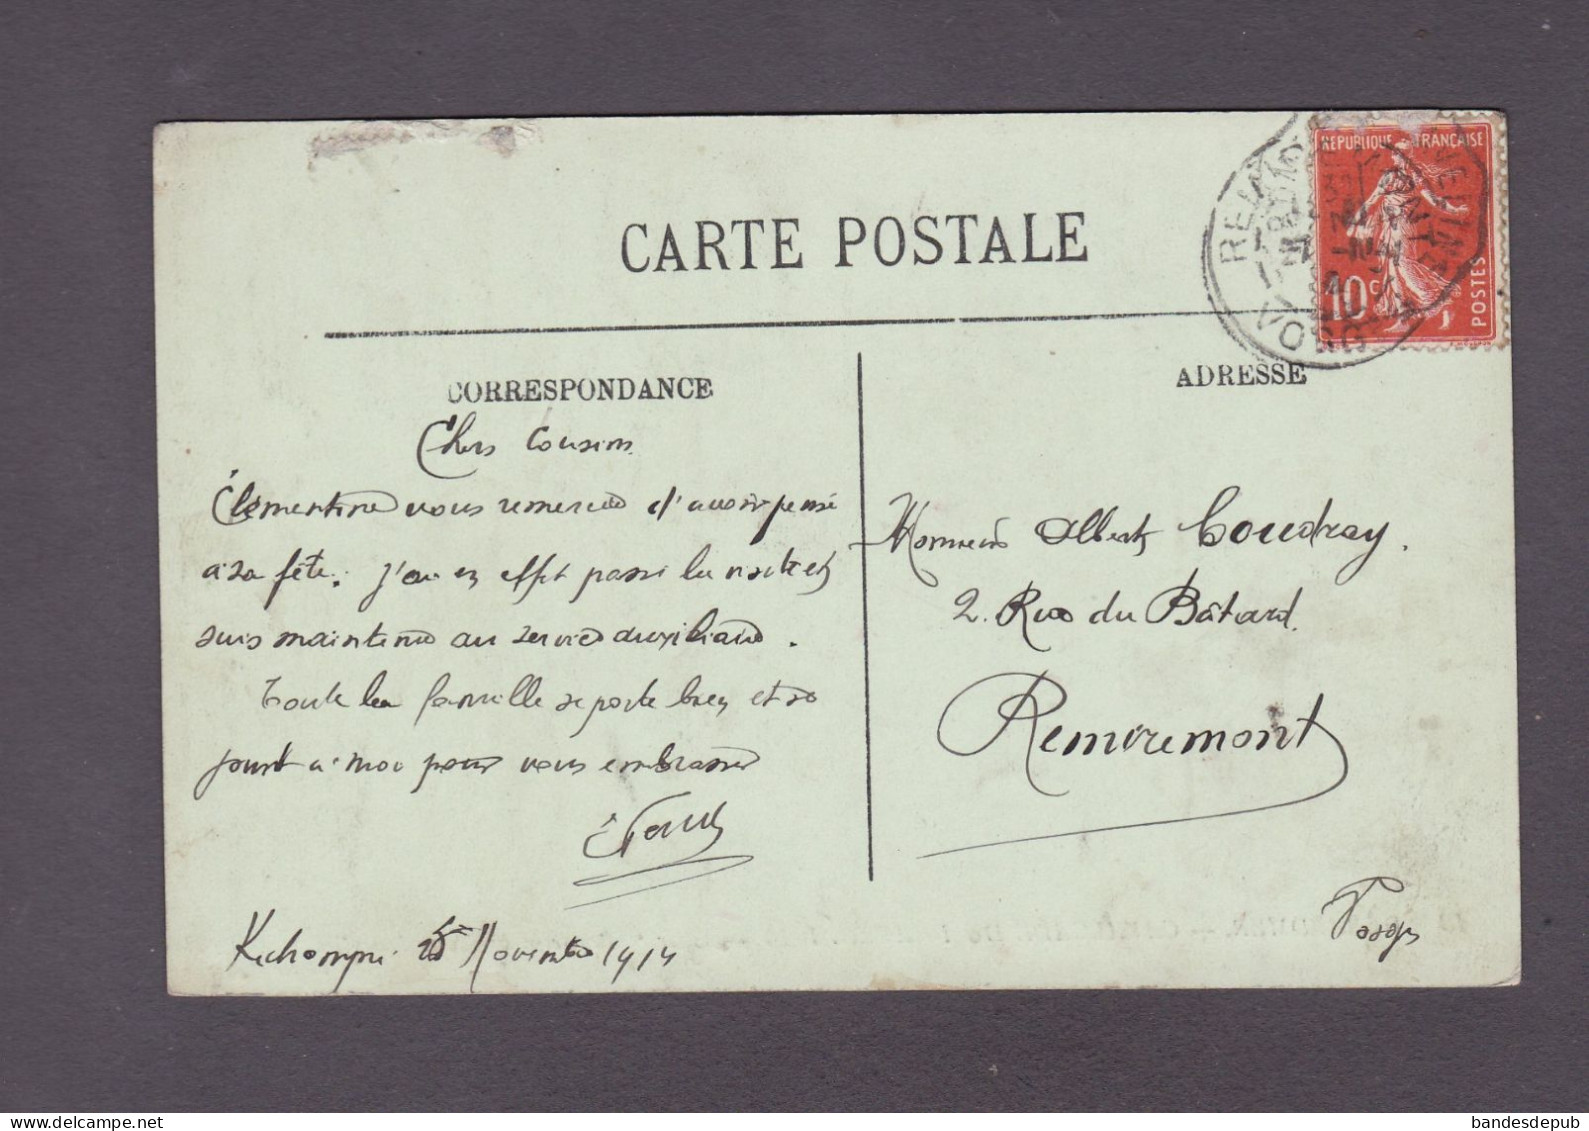 CARTE POSTALE
CORRESPONDANCE
ADRESSE
REPUBLIQUE FRANÇAISE
10 c
POSTES
VOSGES
Chers Cousins
Clementine vous remercie d'avoir pensé
à sa fête. J'ai en effet passé la visite et
suis maintenu au service auxiliaire.
Toute la famille se porte bien et se
joint à moi pour vous embrasser
Kichompré 15 Novembre 1914
Monsieur Albert Coudray.
2. Rue du Bâtard.
Remiremont
Vosges
delcampe.net
bandesdepub